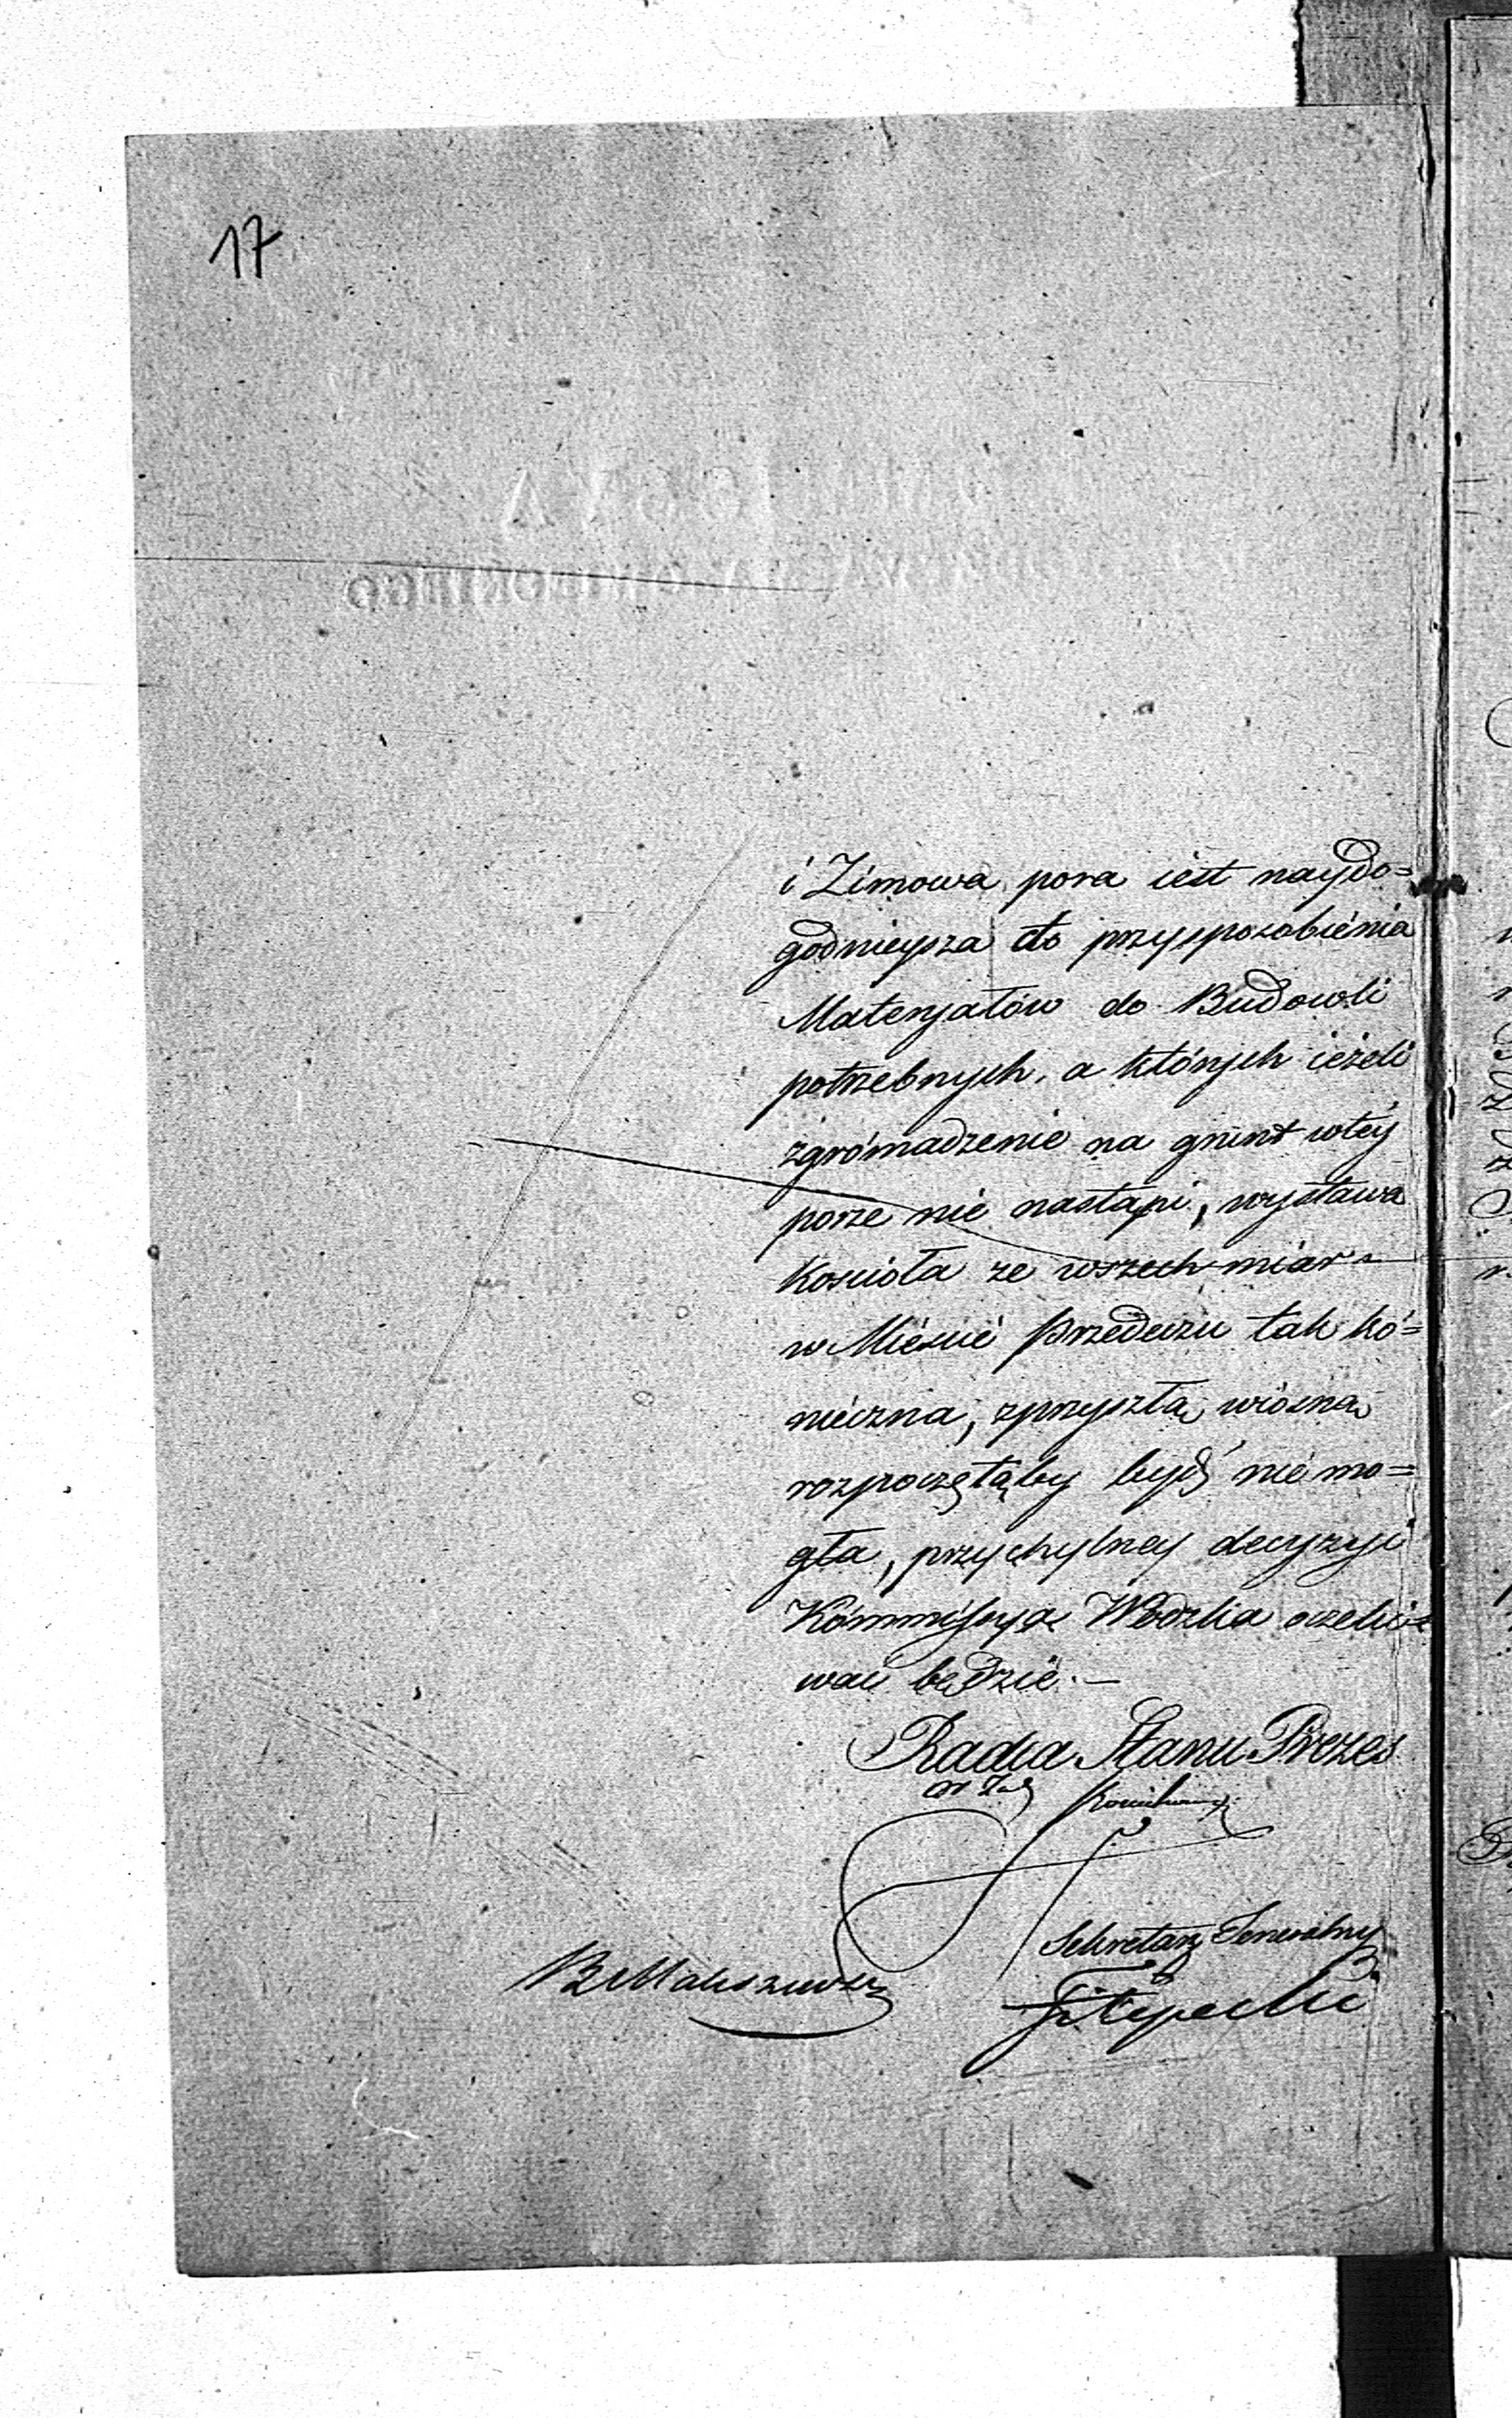 17
i Zimowa pora iest naydo=
godnieysza do przysposobienia
Materjałów do Budowli
potrzebnych, a których ieżeli
zgrómadzenie na grunt wtéy
porze nie nastąpi, wystawa
Kościoła ze wszech miar
w Mieście Przedeczu tak kó=
nieczna, zprzyszłą wiosną
rozpoczętąby bydź nie mo=
gła, przychylney decyzyi
Kómmissyja Wdzka oczeki=
wać będzie. —
Radca Stanu Prezes
w Z.
Sekretarz Generalny
Filipecki